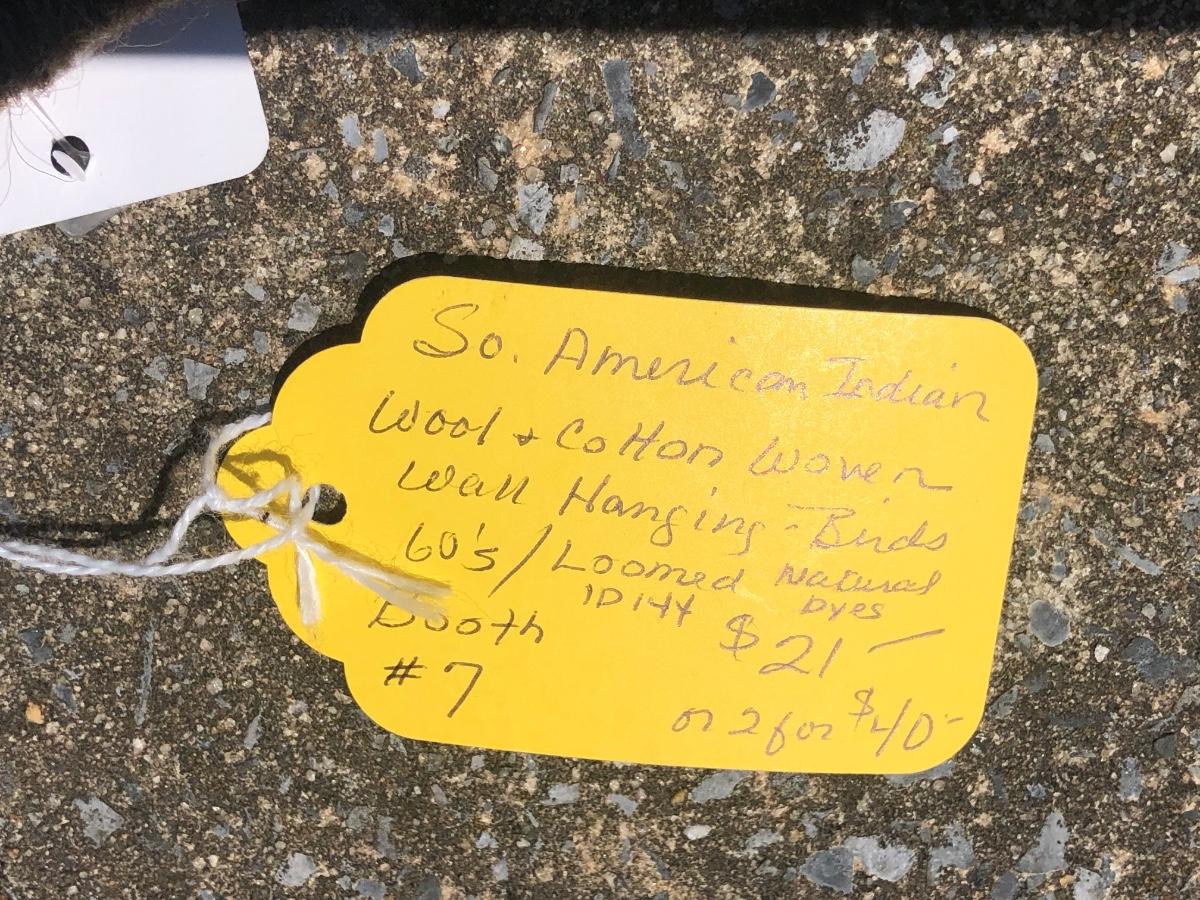 So. American Indian
Wool + Cotton Woven
Wall Hanging - Birds
60's / Loomed Natural
Dyes
1D144
Booth
$21 —
# 7
or 2 for $40-